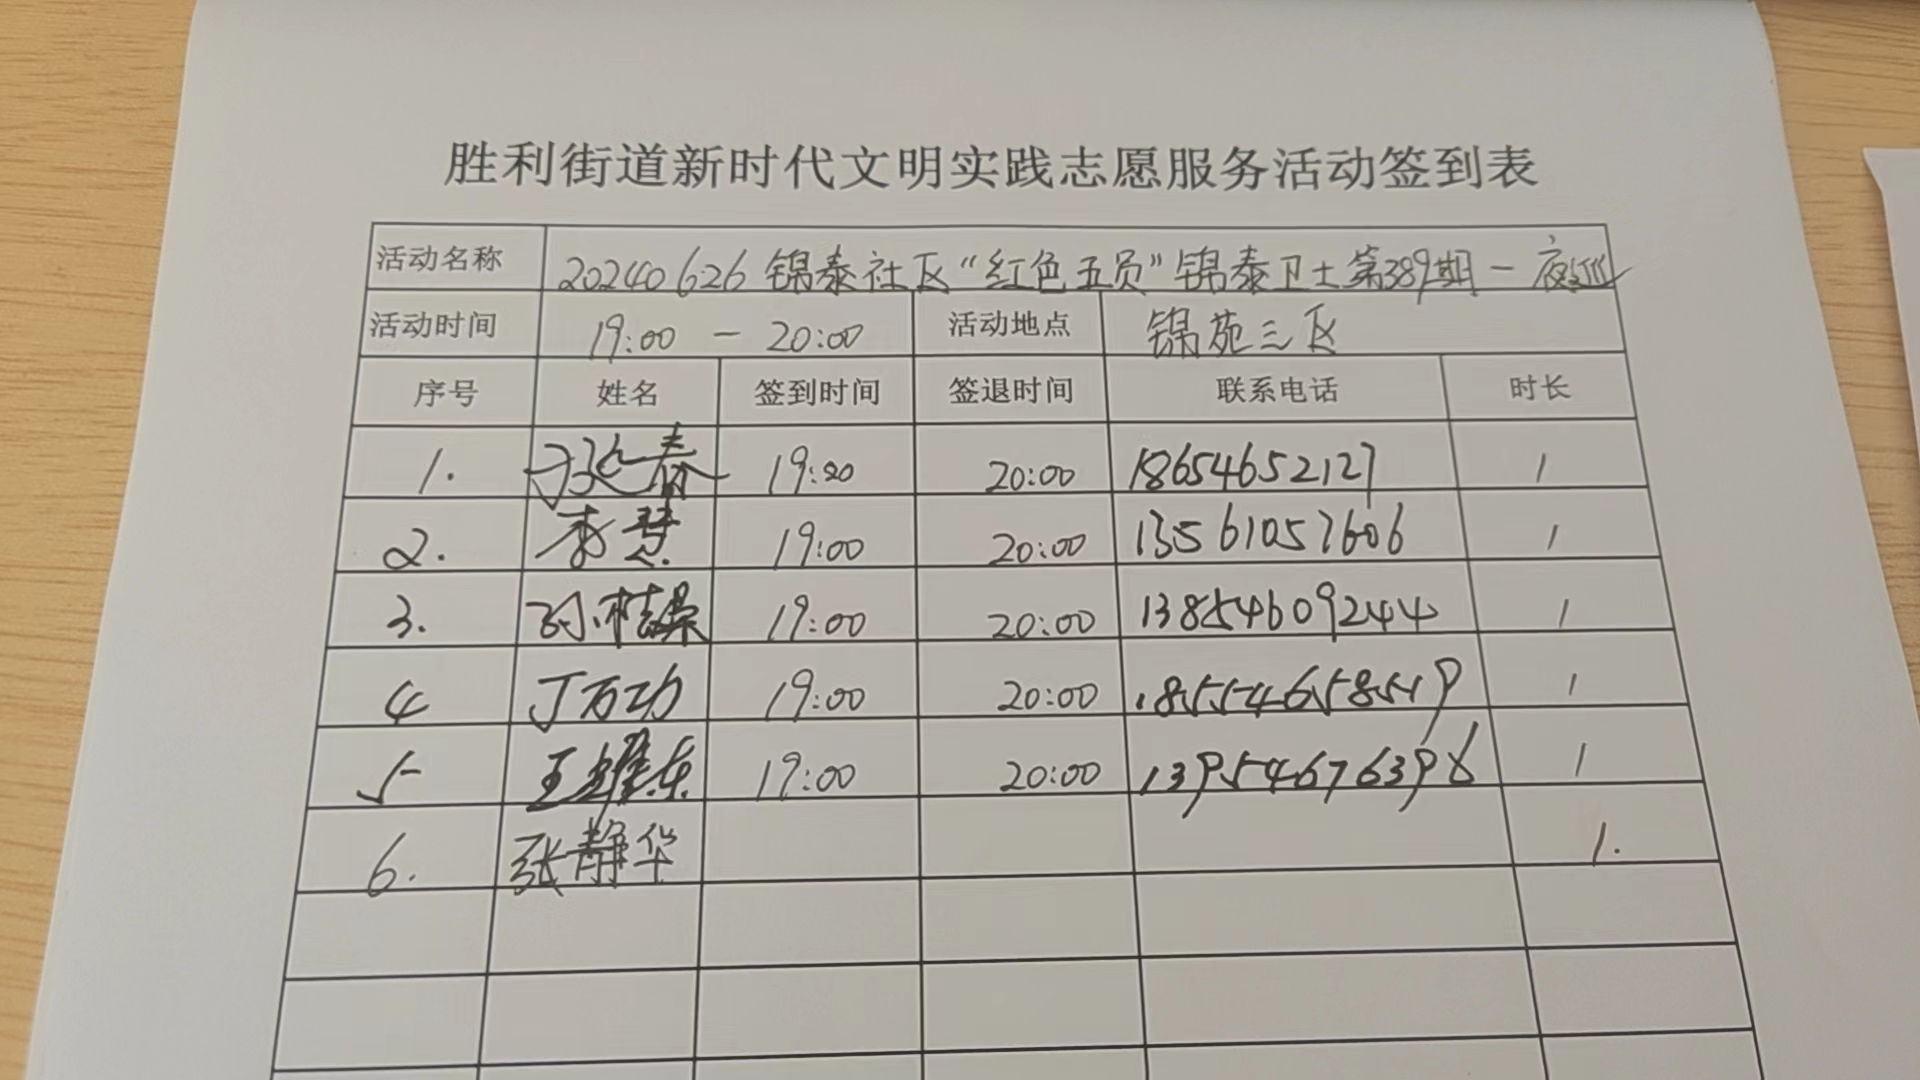 胜利街道新时代文明实践志愿服务活动签到表
活动名称 20240626 锦泰社区“红色五员”锦泰卫士第389期-夜巡
活动时间 19:00 - 20:00 活动地点 锦苑三区
序号 姓名 签到时间 签退时间 联系电话 时长
1. 延春 19:00 20:00 18654652127 1
2. 李慧 19:00 20:00 13561057606 1
3. 孙桂 19:00 20:00 13854609244 1
4 丁万功 19:00 20:00 18554658519 1
5 王维东 19:00 20:00 13954676398 1
6. 张静华 1.